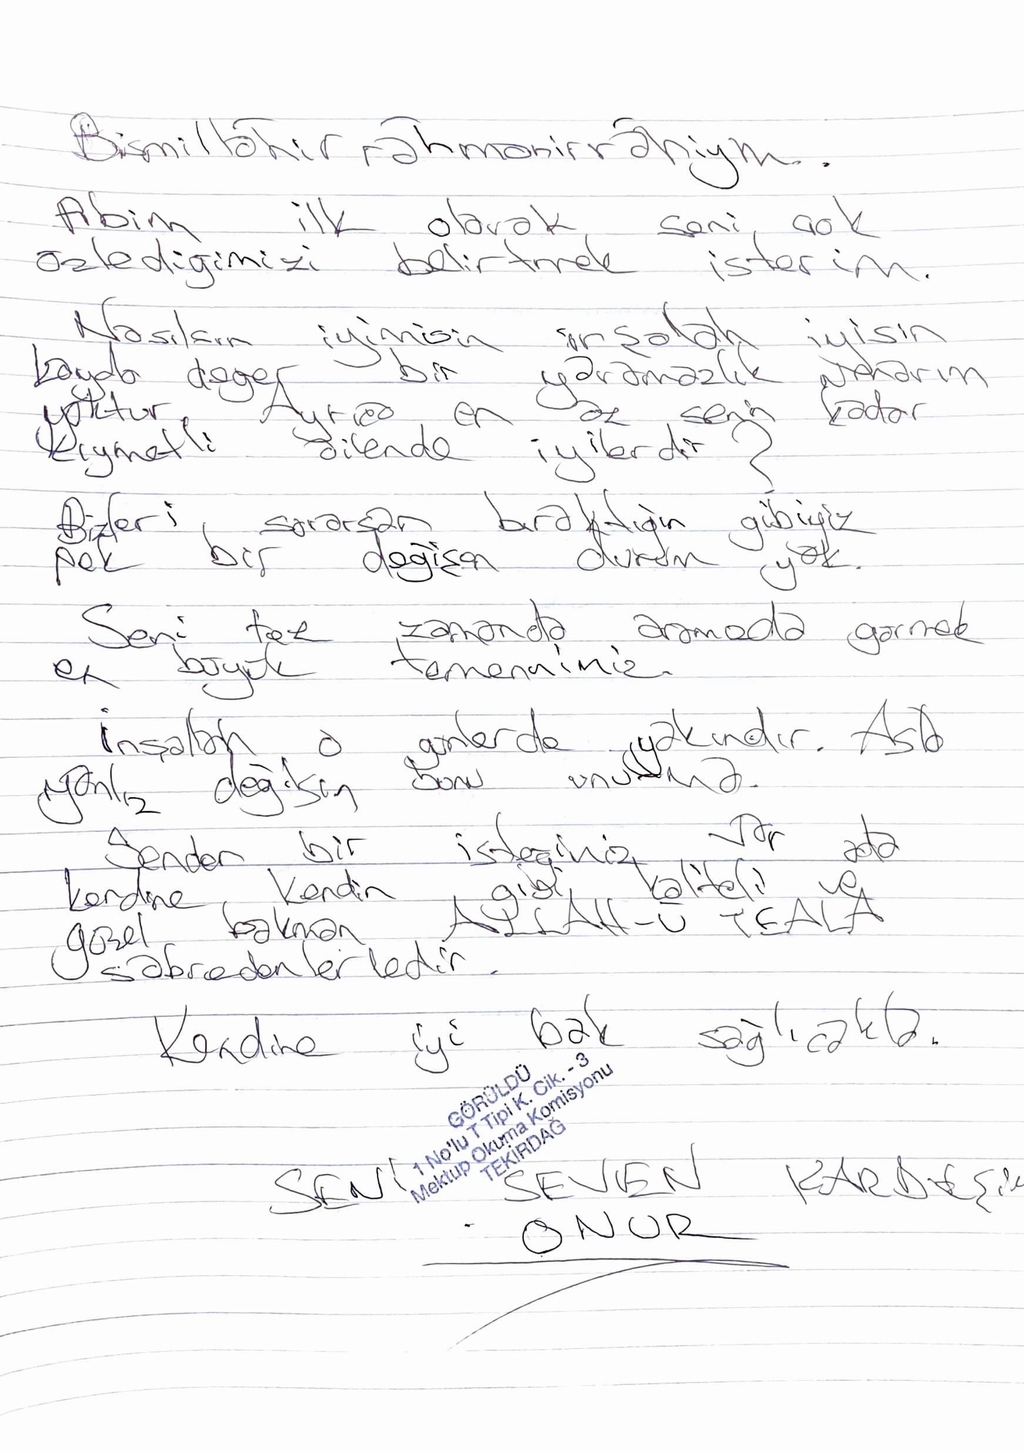 Bismillahir rahmanirrahiym..
Abim ilk olarak seni çok
özlediğimizi belirtmek isterim.
Nasılsın iyimisin inşalah iyisin
kayda değer bir yaramazlık
yoktur. Ayrıca en az senin kadar
kıymetli ailende iyilerdir?
Bizleri sorarsan bıraktığın gibiyiz
pek bir değişen durum yok.
Seni tez zamanda aramada görmek
en büyük temennimiz.
İnşalah o günlerde yakındır. Asla
yanlız değilsin bunu unutma.
Senden bir isteğimiz var oda
kendine kendin gibi kaliteli ve
güzel bakman ALLAH-Ü TEALA
sabredenlerledir.
Kendine iyi bak sağlıcakla.
GÖRÜLDÜ
1 No'lu T Tipi K. Cik. - 3
Mektup Okuma Komisyonu
TEKİRDAĞ
SENİ SEVEN KARDEŞİN
ONUR